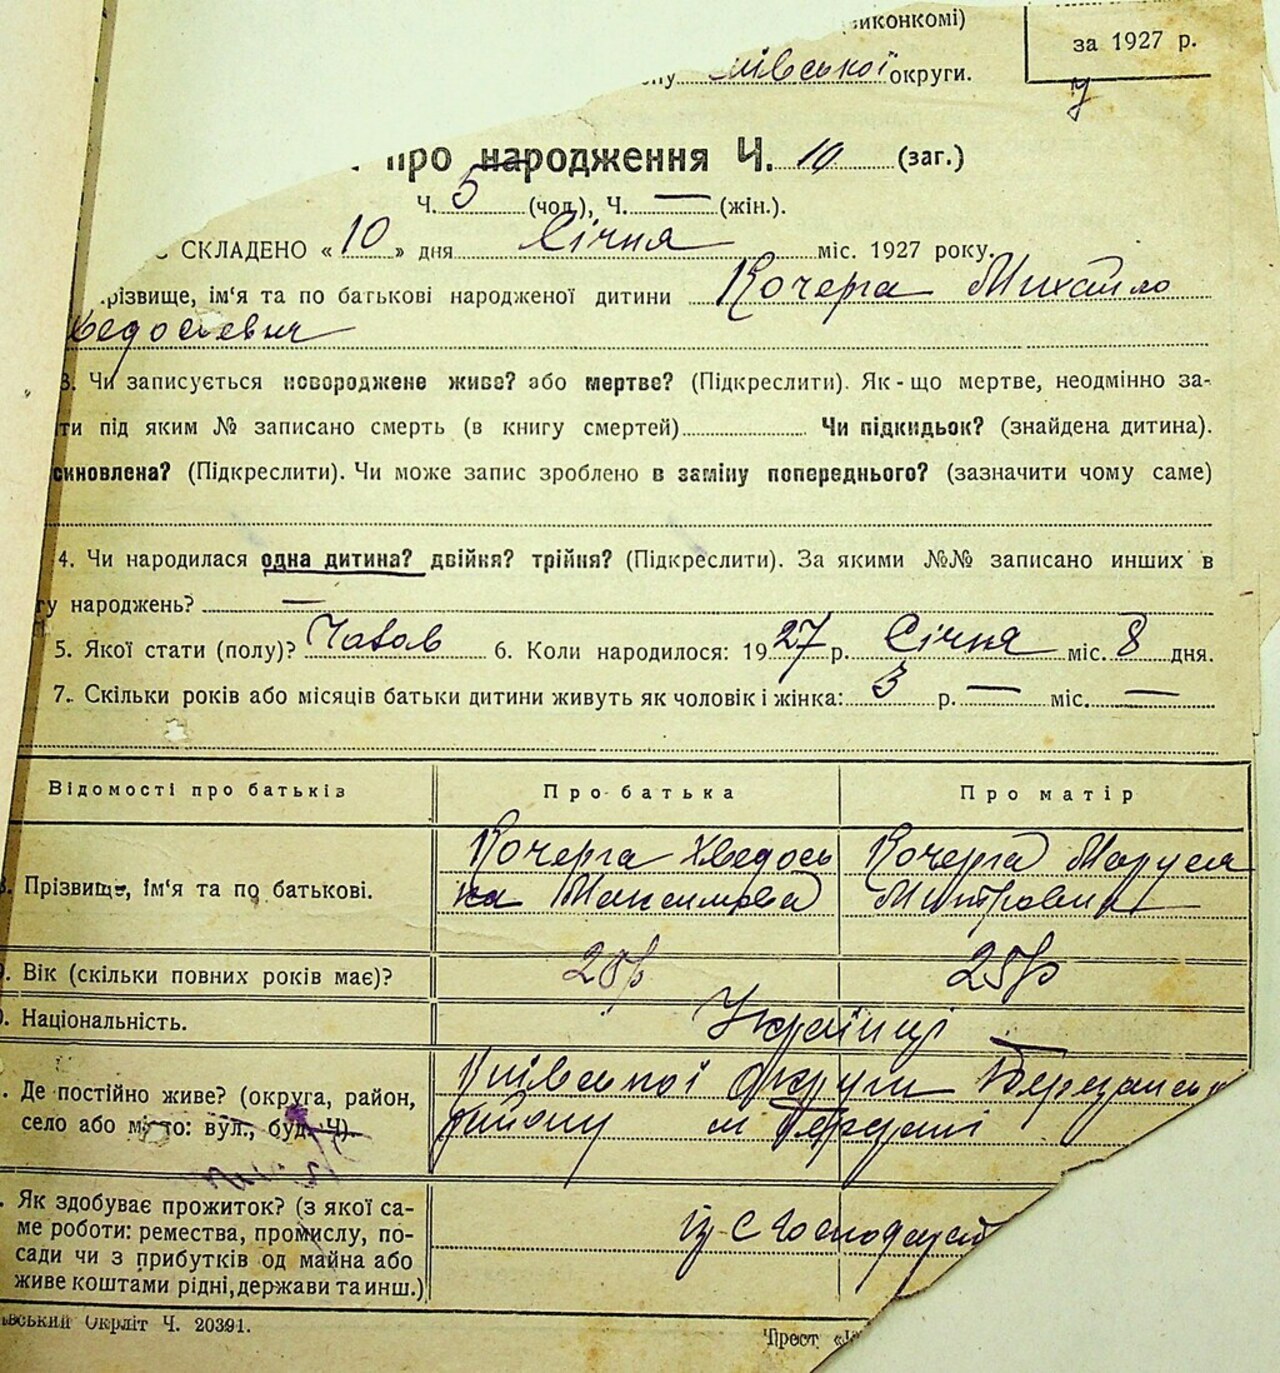 виконкомі)
за 1927 р.
ївської округи.
у
про народження Ч. 10 (заг.)
Ч. 5 (чол.), Ч. — (жін.).
СКЛАДЕНО «10» дня Січня міс. 1927 року.
різвище, ім'я та по батькові народженої дитини Кочерга Михайло
ведосієвич
3. Чи записується новороджене живе? або мертве? (Підкреслити). Як-що мертве, неодмінно за-
ти під яким № записано смерть (в книгу смертей) Чи підкидьок? (знайдена дитина).
синовлена? (Підкреслити). Чи може запис зроблено в заміну попереднього? (зазначити чому саме)
4. Чи народилася одна дитина? двійня? трійня? (Підкреслити). За якими №№ записано инших в
гу народжень? —
5. Якої стати (полу)? Чолов 6. Коли народилося: 1927 р. Січня міс. 8 дня.
7. Скільки років або місяців батьки дитини живуть як чоловік і жінка: 3 р. — міс. —
Відомості про батьків Про батька Про матір
8. Прізвище, ім'я та по батькові. Кочерга Хведось Кочерга Маруся
на Максимова Митровна
9. Вік (скільки повних років має)? 25р
0. Національність. Українці
Де постійно живе? (округа, район, Київської округи Березансь
село або місто: вул., буд. Ч). району м Березані
Як здобуває прожиток? (з якої са-
ме роботи: ремества, промислу, по-
сади чи з прибутків од майна або
живе коштами рідні, держави та инш.)
із с господарс
ївський Окрліт Ч. 20391.
Трест